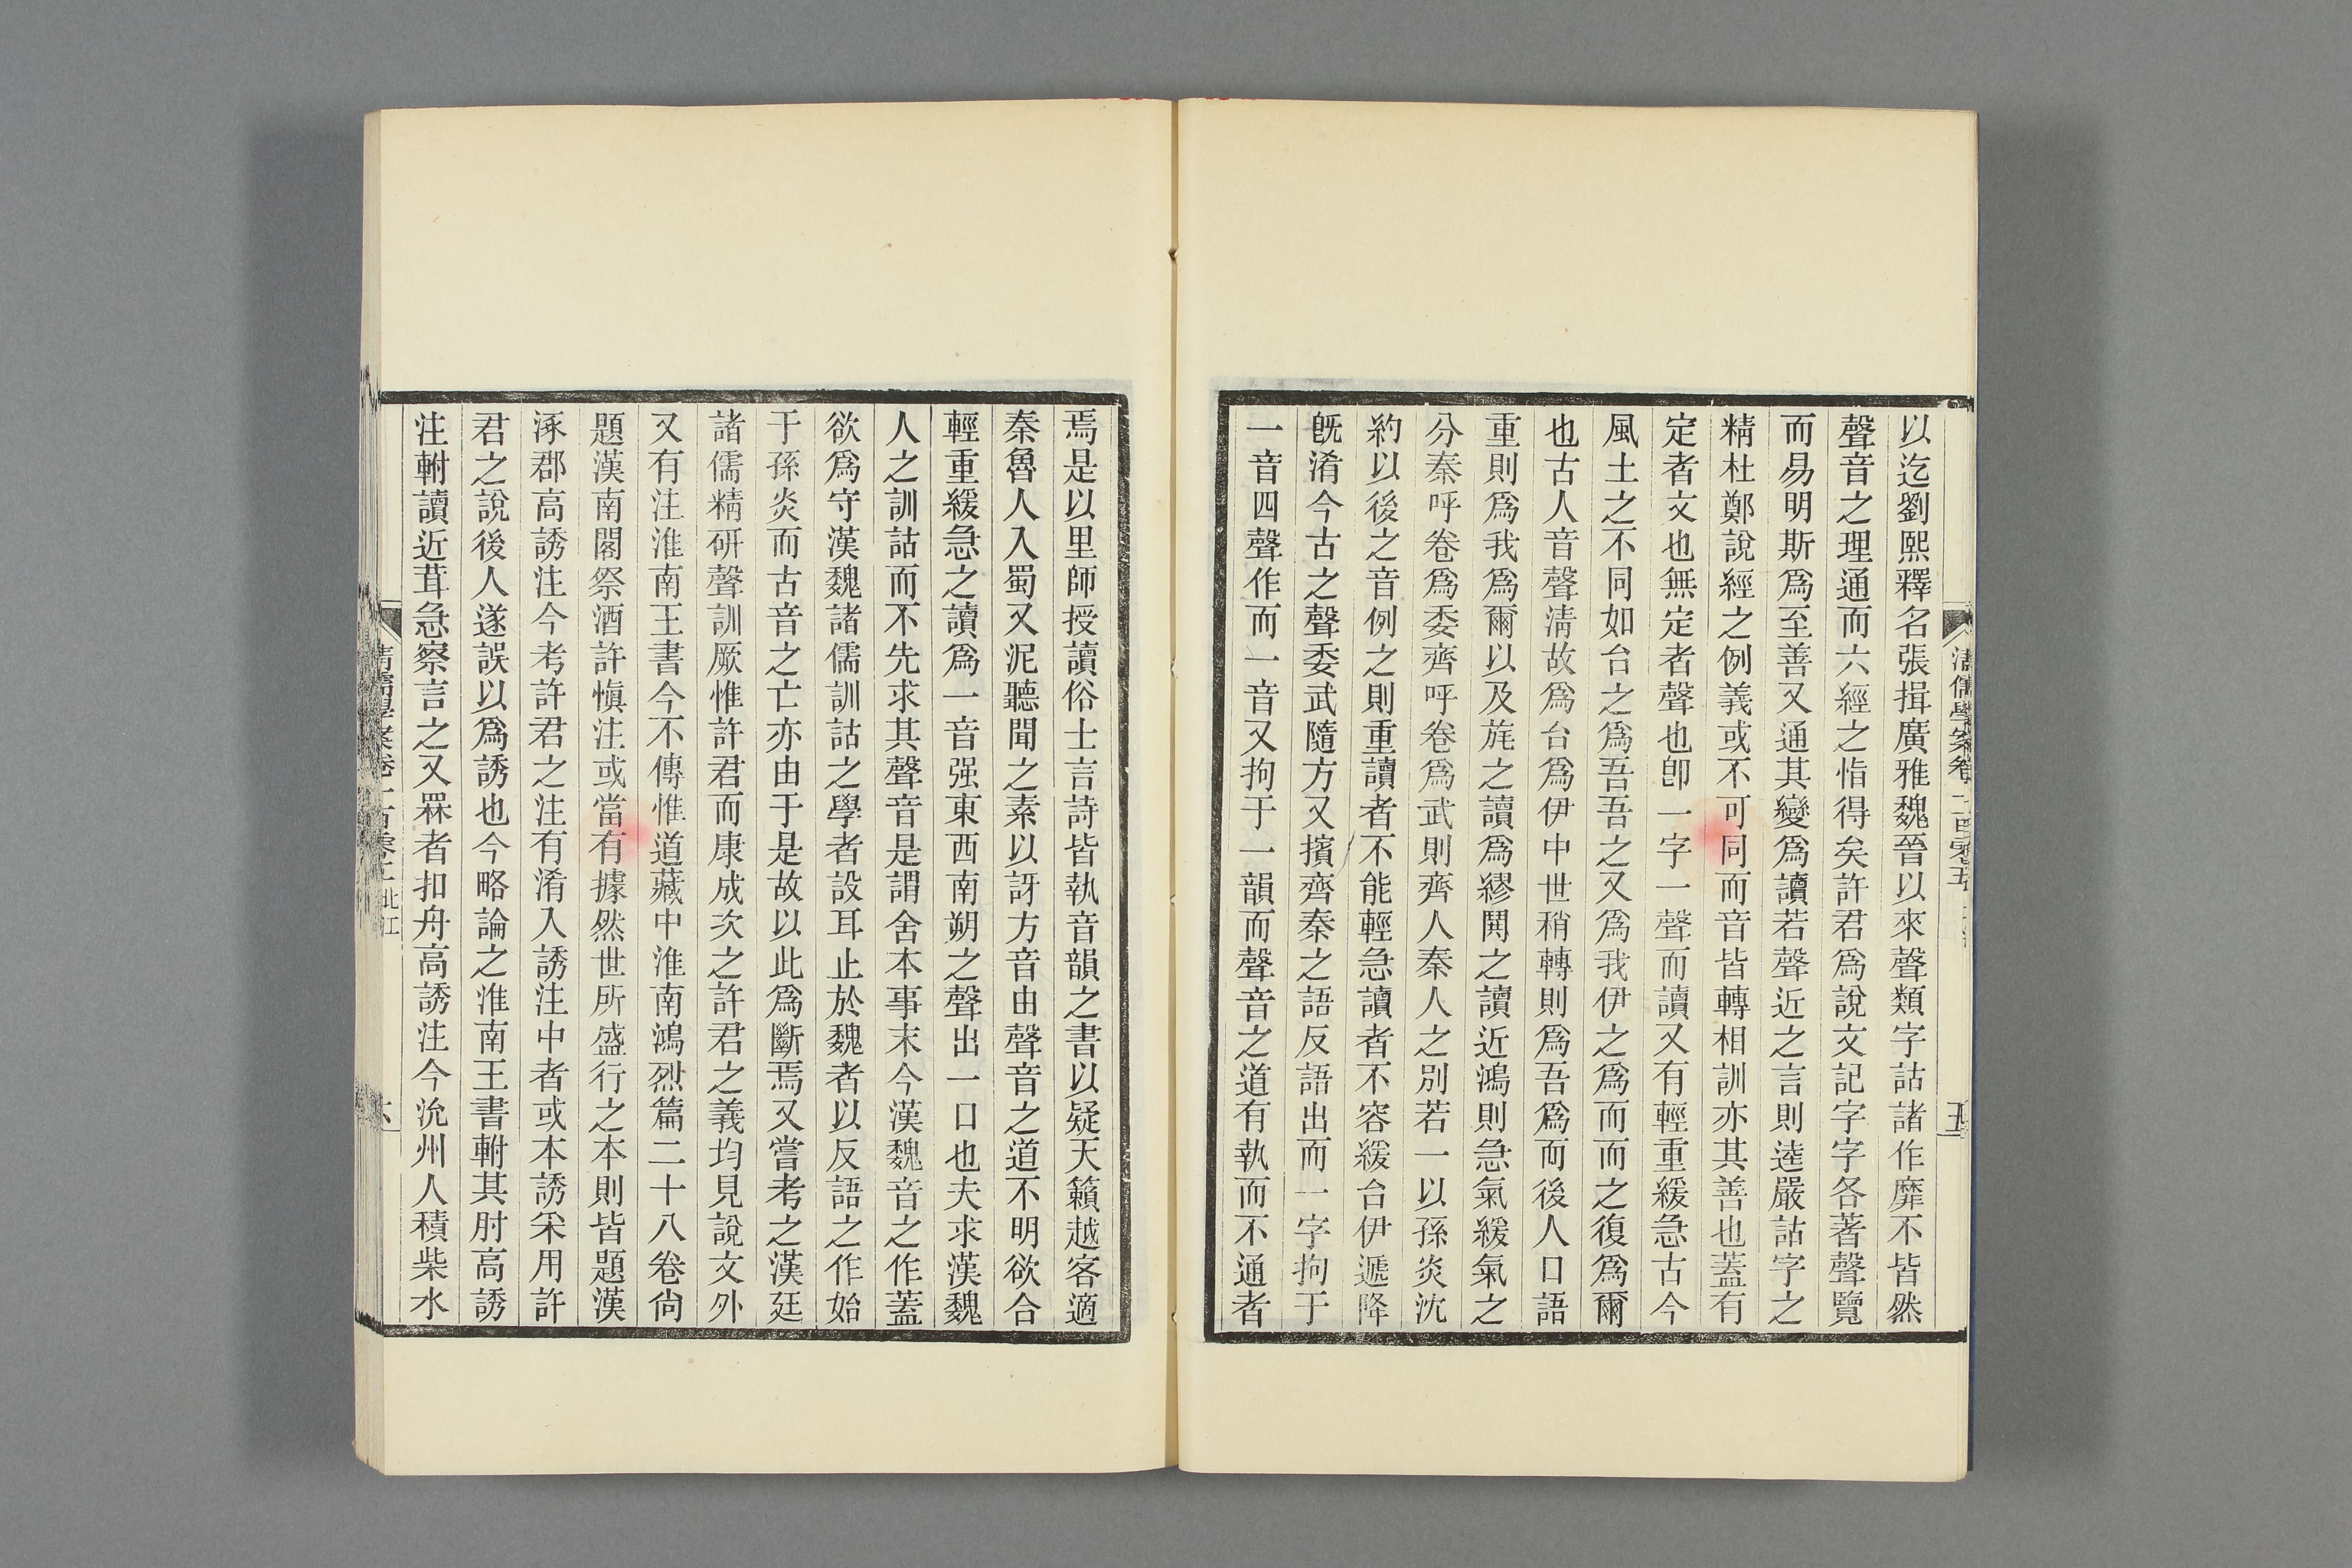 以迄劉熙釋名張揖廣雅魏晉以來聲類字詁諸作靡不皆然
聲音之理通而六經之恉得矣許君爲說文記字字各著聲覽
而易明斯爲至善又通其變爲讀若聲近之言則逵嚴詁字之
精杜鄭說經之例義或不可同而音皆轉相訓亦其善也蓋有
定者文也無定者聲也卽一字一聲而讀又有輕重緩急古今
風土之不同如台之爲吾吾之又爲我伊之爲而而之復爲爾
也古人音聲淸故爲台爲伊中世稍轉則爲吾爲而後人口語
重則爲我爲爾以及旄之讀爲繆鬨之讀近鴻則急氣緩氣之
分秦呼卷爲委齊呼卷爲武則齊人秦人之別若一以孫炎沈
約以後之音例之則重讀者不能輕急讀者不容緩台伊遞降
旣淆今古之聲委武隨方又擯齊秦之語反語出而一字拘于
一音四聲作而一音又拘于一韻而聲音之道有執而不通者
焉是以里師授讀俗士言詩皆執音韻之書以疑天籟越客適
秦魯人入蜀又泥聽聞之素以訝方音由聲音之道不明欲合
輕重緩急之讀爲一音强東西南朔之聲出一口也夫求漢魏
人之訓詁而不先求其聲音是謂舍本事末今漢魏音之作蓋
欲爲守漢魏諸儒訓詁之學者設耳止於魏者以反語之作始
于孫炎而古音之亡亦由于是故以此爲斷焉又嘗考之漢廷
諸儒精研聲訓厥惟許君而康成次之許君之義均見說文外
又有注淮南王書今不傳惟道藏中淮南鴻烈篇二十八卷尙
題漢南閣祭酒許愼注或當有據然世所盛行之本則皆題漢
涿郡高誘注今考許君之注有淆入誘注中者或本誘采用許
君之說後人遂誤以爲誘也今略論之淮南王書軵其肘高誘
注軵讀近茸急察言之又罧者扣舟高誘注今沇州人積柴水